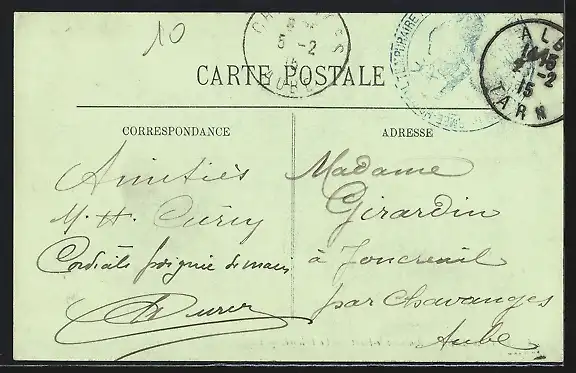 10
CARTE POSTALE
CORRESPONDANCE
Amitiés
M. H. Curey
Cordiale poignée de main
ADRESSE
Madame
Girardin
à Joncreuil
par Chavanges
Aube
5 -2
15
AUBE
ALB
15 -2
15
TARN
TEMPORAIRE